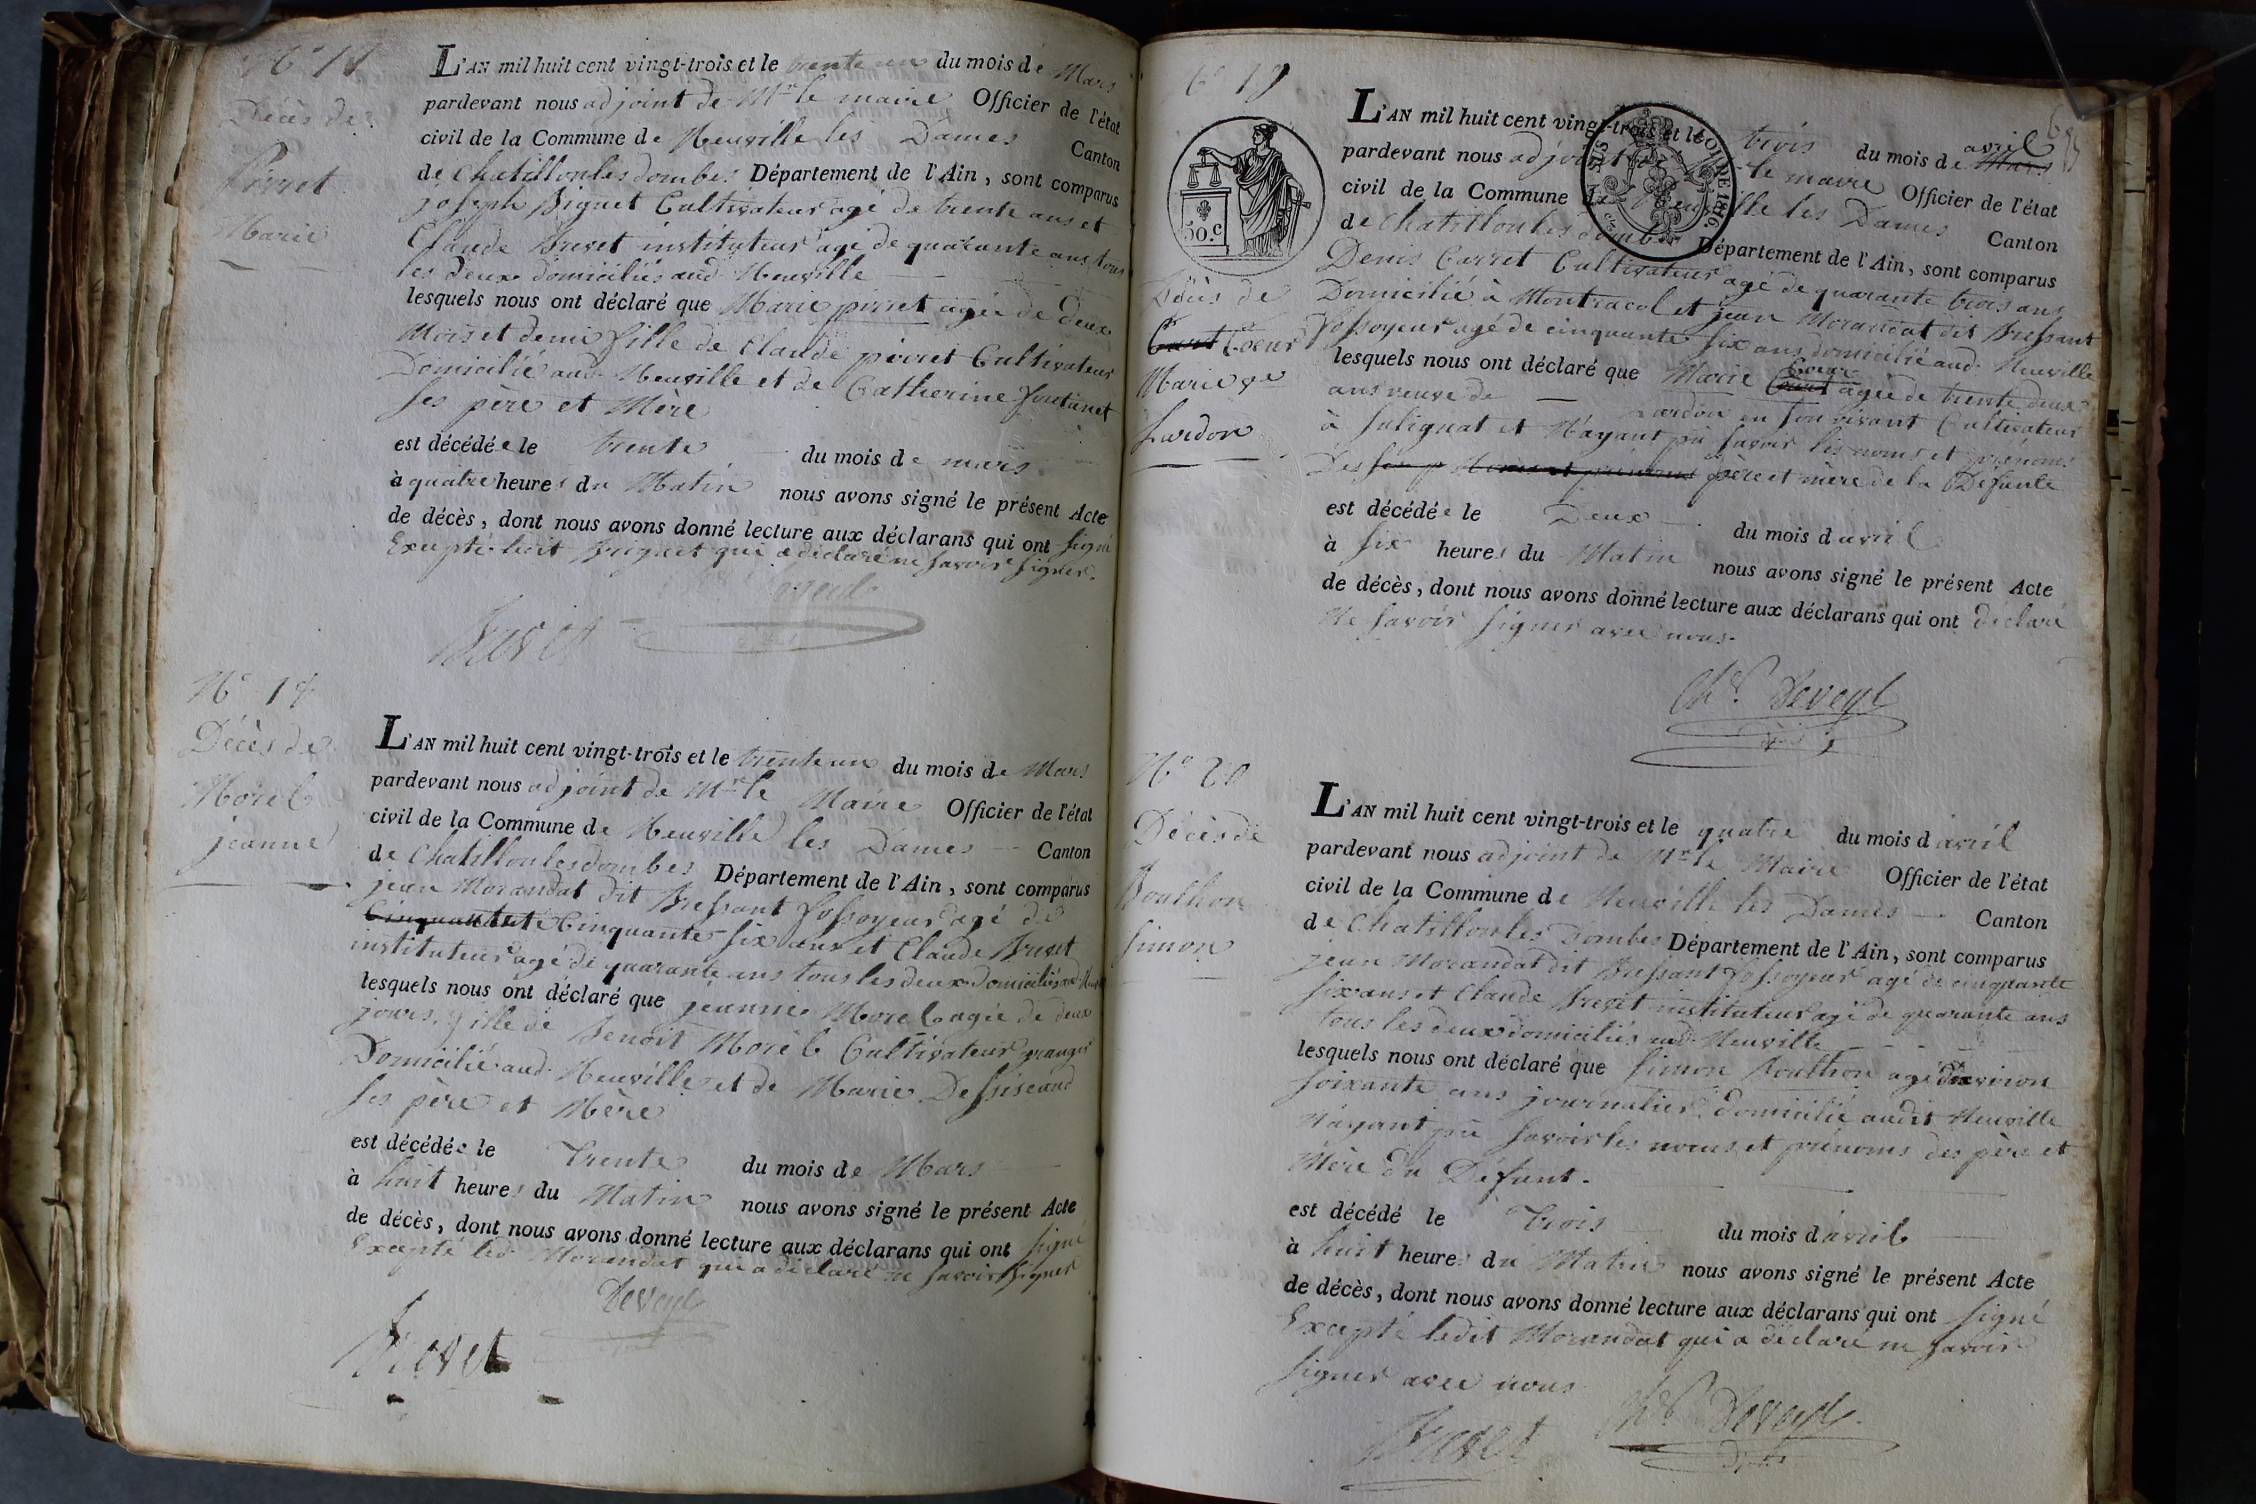 Décès de
Pirret
Marie
L'AN mil huit cent vingt-trois et le trente un du mois de Mars
pardevant nous adjoint de Mr le maire Officier de l'état
civil de la Commune de Neuville les Dames Canton
de Chatillon les dombes Département de l'Ain, sont comparus
joseph Piguet Cultivateur agé de trente ans et
Claude Brevet instituteur agé de quarante ans tous
les deux domiciliés aud. Neuville
lesquels nous ont déclaré que Marie pirret agée de deux
Mois et demi fille de Claude pirret Cultivateur
Domicilié aud. Neuville et de Catherine
ses père et Mère
est décédée le trente du mois de mars
à quatre heures du Matin nous avons signé le présent Acte
de décès, dont nous avons donné lecture aux déclarans qui ont signé
Excepté ledit qui a déclaré ne savoir signer.
Brevet
Deveyle
Décès de
Morel
jeanne
L'AN mil huit cent vingt-trois et le trente un du mois de Mars
pardevant nous adjoint de Mr le Maire Officier de l'état
civil de la Commune de Neuville les Dames Canton
de Chatillon les dombes Département de l'Ain, sont comparus
jean Morandat dit Bressant fossoyeur agé de
Cinquante six ans et Claude Brevet
instituteur agé de quarante ans tous les deux domiciliés aud. Neuville
lesquels nous ont déclaré que jeanne Morel agée de deux
jours, fille de Benoit Morel Cultivateur granger
Domicilié aud. Neuville et de Marie
ses père et Mère
est décédée le trente du mois de Mars
à huit heures du Matin nous avons signé le présent Acte
de décès, dont nous avons donné lecture aux déclarans qui ont signé
Excepté led. Morandat qui a déclaré ne savoir signer
Deveyle
Brevet
19
50.C
Décès de
Coeur
Marie ve
Lardon
L'AN mil huit cent vingt-trois et le trois du mois de avril
pardevant nous adjoint de Mr le maire Officier de l'état
civil de la Commune de Neuville les Dames Canton
de Chatillon les dombes Département de l'Ain, sont comparus
Denis Carret Cultivateur agé de quarante trois ans
Domicilié à Montracol et jean Morandat dit Bressant
fossoyeur agé de cinquante six ans domicilié aud. Neuville
lesquels nous ont déclaré que Marie Coeur agée de trente deux
ans veuve de Lardon en son vivant Cultivateur
à Sulignat et N'ayant pu savoir les noms et prénoms
des père et mère de la Défunte
est décédée le Deux du mois d'avril
à six heures du Matin nous avons signé le présent Acte
de décès, dont nous avons donné lecture aux déclarans qui ont déclaré
Ne savoir signer avec nous.
Chs Deveyle
No 20
Décès de
Bouthon
Simon
L'AN mil huit cent vingt-trois et le quatre du mois d'avril
pardevant nous adjoint de Mr le Maire Officier de l'état
civil de la Commune de Neuville les Dames Canton
de Chatillon les Dombes Département de l'Ain, sont comparus
jean Morandat dit Bressant fossoyeur agé de cinquante
six ans et Claude Brevet instituteur agé de quarante ans
tous les deux domiciliés aud. Neuville
lesquels nous ont déclaré que Simon Bouthon agé d'environ
soixante ans journalier domicilié audit Neuville
N'ayant pu savoir les noms et prénoms des père et
Mère du Défunt.
est décédé le trois du mois d'avril
à huit heures du Matin nous avons signé le présent Acte
de décès, dont nous avons donné lecture aux déclarans qui ont signé
Excepté ledit Morandat qui a déclaré ne savoir
signer avec nous
Brevet
Chs Deveyle